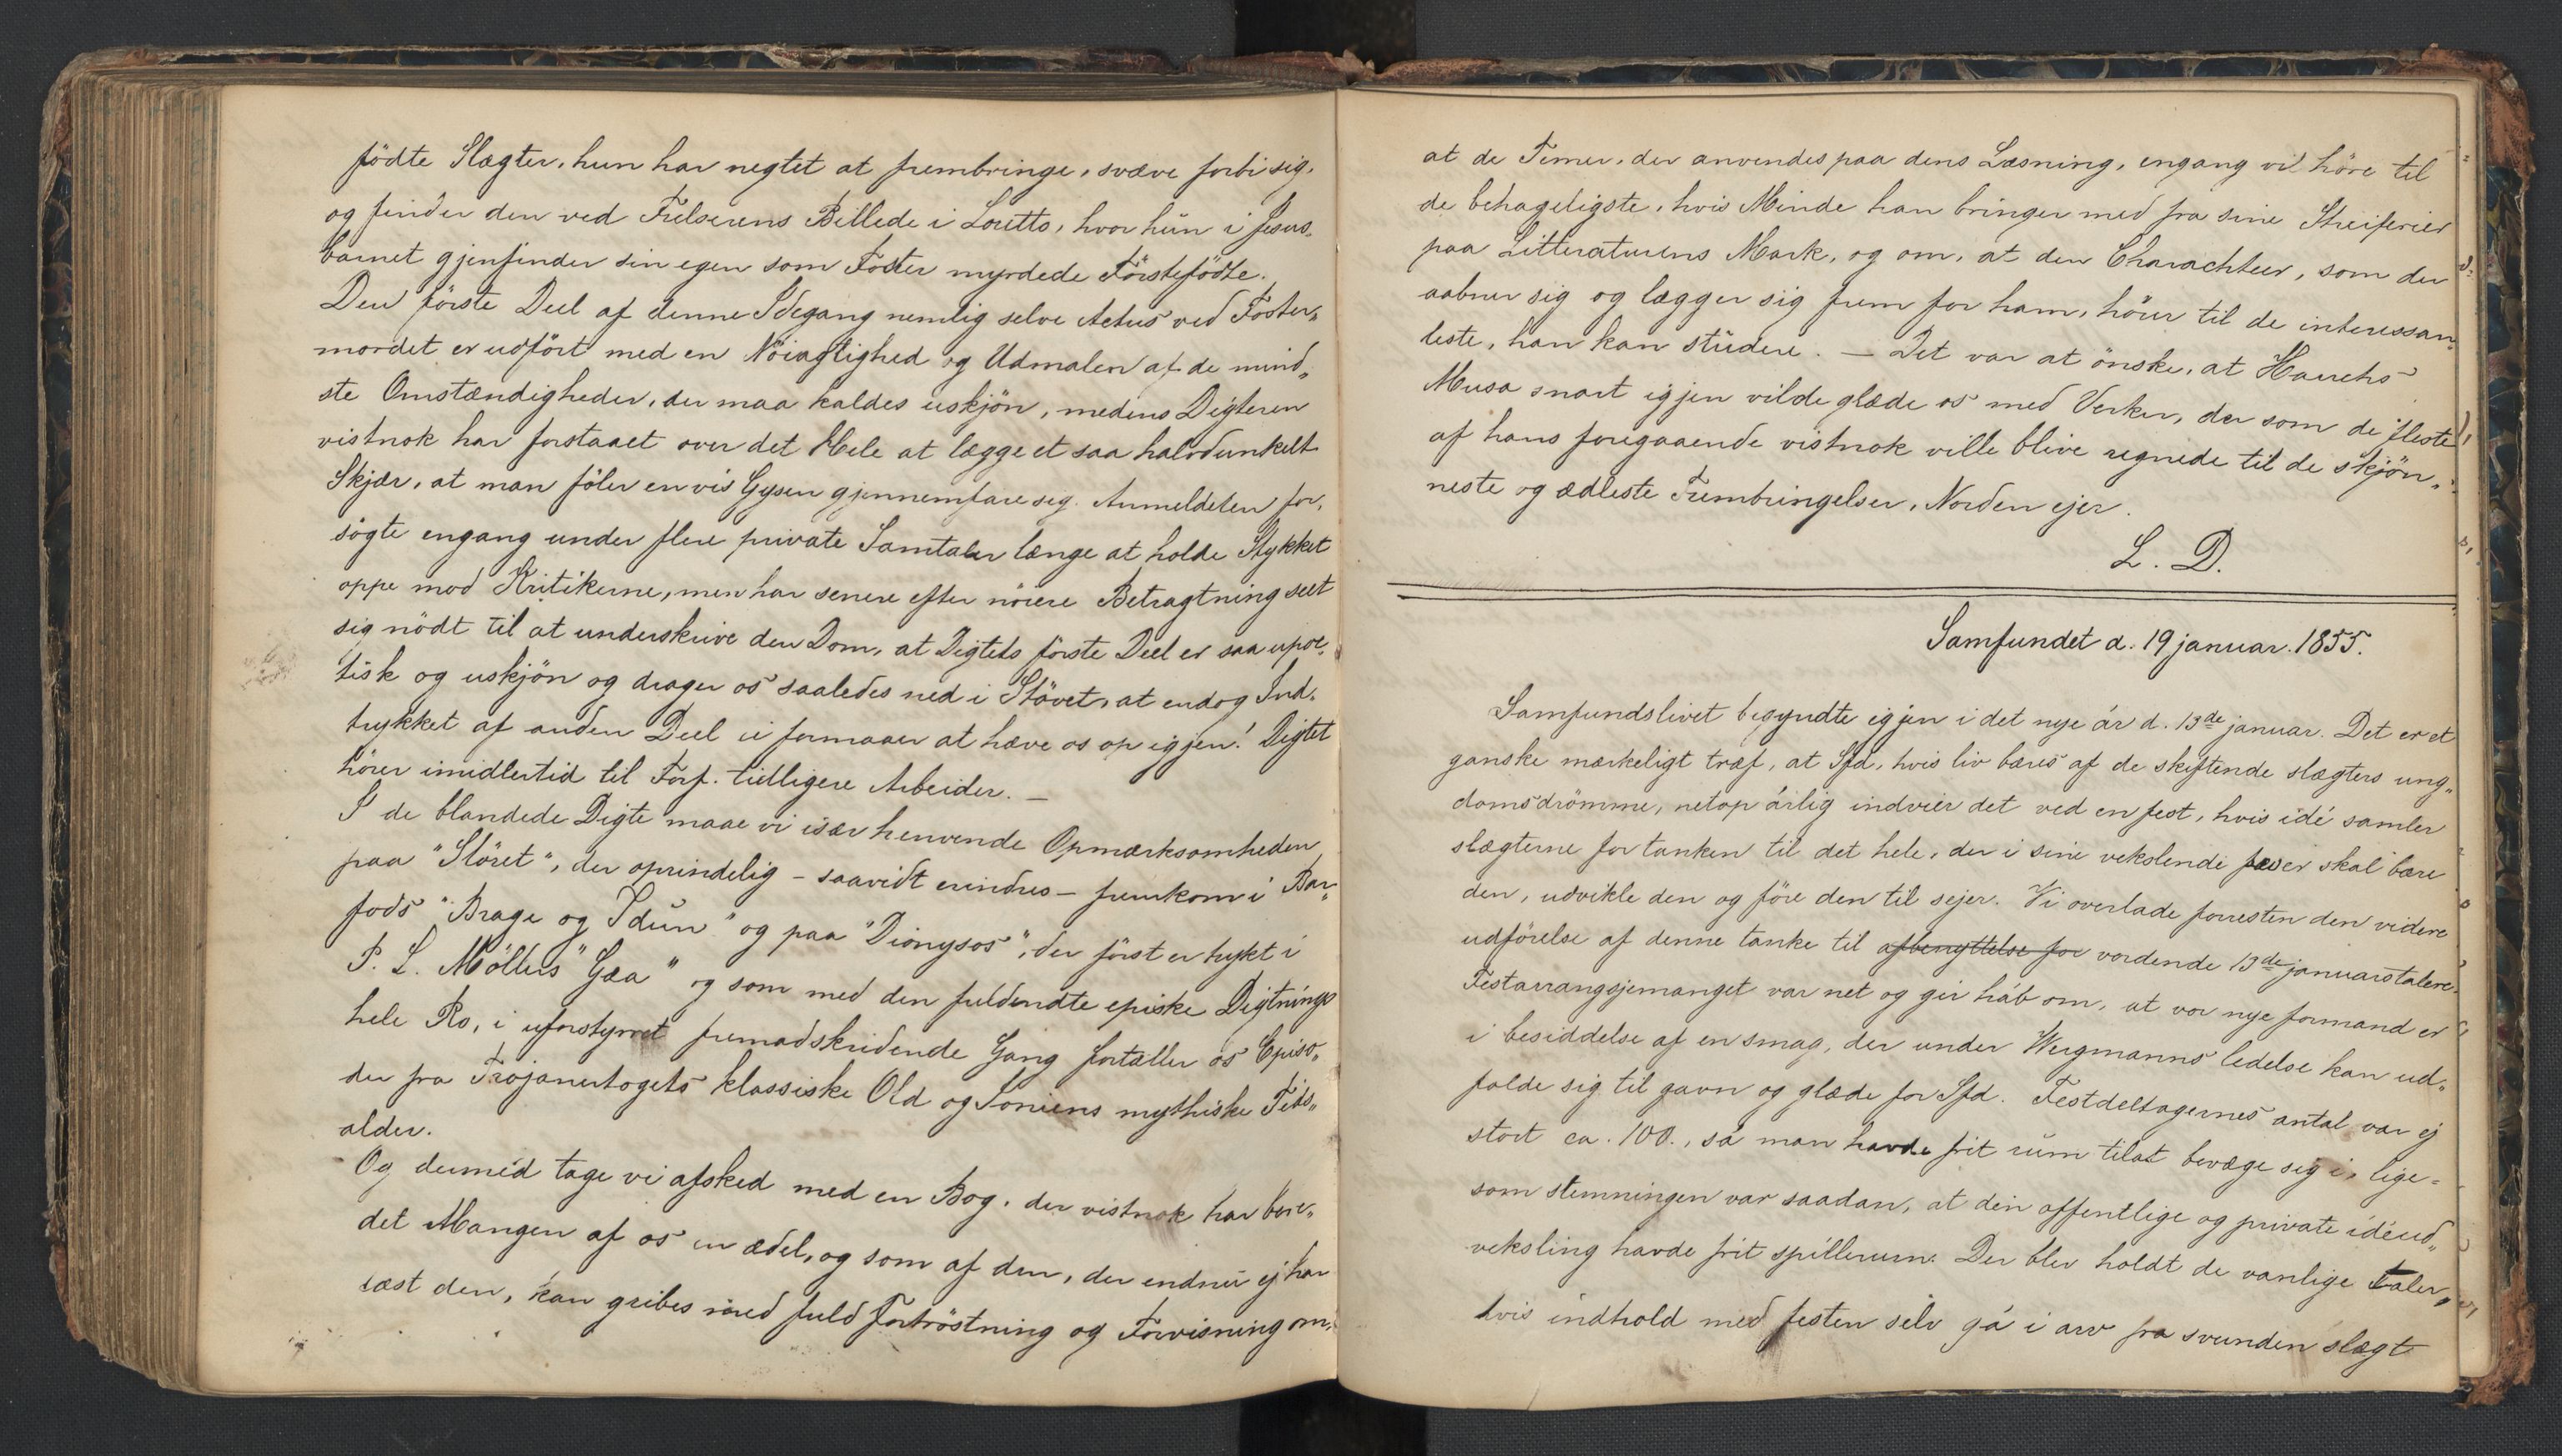 födte Slægter, hun har negtet at frembringe, svæve forbi sig,
og finder den ved Frelserens Billede i Loretto, hvor hun i Jesus,,
barnet gjenfinder sin egen som Foster myrdede Förstefödte.
Den förste Deel af denne Idegang nemlig selve Actus ved Foster,,
mordet er udfört med en Nöiagtighed og Udmalen af de mind,,
ste Omstændigheder, der maa kaldes uskjön, medens Digteren
vistnok har forstaaet over det Hele at lægge et saa halvdunkelt
Skjær, at man föler en vis Gysen gjennemfare sig. Anmelderen for,,
sögte engang under flere private Samtaler længe at holde Stykket
oppe mod Kritikerne, men har senere efter nöiere Betragtning seet
sig nödt til at underskrive den Dom, at Digtets förste Deel er saa upoe,,
tisk og uskjön og drager os saaledes ned i Stövet, at endog Ind,,
trykket af anden Deel ei formaaer at hæve os op igjen! Digtet
hörer imidlertid til Forf. tidligere Arbeider. —
I de blandede Digte maae vi især henvende Opmærksomheden
paa "Slöret", der oprindelig – saavidt erindres – fremkom i Bar,,
fods "Brage og Idun" og paa "Dionysos", der först er trykt i
P. L. Möllers "Gæa" og som med den fuldendte episke Digtnings
hele Ro, i uforstyrret fremadskridende Gang fortæller os Episo,,
der fra Trojanertogets klassiske Old og Joniens mythiske Tids,,
alder.
Og dermed tage vi afsked med en Bog, der vistnok har bere,,
det Mangen af os en ædel, og som af den, der endnu ej har
læst den, kan gribes med fuld Fortröstning og Forvisning om,
at de Timer, der anvendes paa dens Læsning, engang vil höre til
de behageligste, hvis Minde han bringer med fra sine Streiferier
paa Litteraturens Mark, og om, at den Charachteer, som der
aabner sig og lægger sig frem for ham, hörer til de interessan,,
teste, han kan studere. — Det var at önske, at Hauchs
Musa snart igjen vilde glæde os med Verker, der som de fleste
af hans foregaaende vistnok ville blive regnede til de skjön,,
neste og ædleste Frembringelser, Norden ejer.
L. D.
Samfundet d. 19 januar. 1855.
Samfundslivet begyndte igjen i det nye år d. 13de januar. Det er et
ganske mærkeligt træf, at Sfd, hvis liv bæres af de skiftende slægters ung,,
domsdrömme, netop årlig indvier det ved en fest, hvis idé samler
slægterne for tanken til det hele, der i sine vekslende faser skal bære
den, udvikle den og före den til sejer. Vi overlade forresten den videre
udförelse af denne tanke til afbenyttelse for vordende 13de januarstalere.
Festarrangsjemanget var net og gir håb om, at vor nye formand er
i besiddelse af en smag, der under Wergmanns ledelse kan ud,,
folde sig til gavn og glæde for Sfd. Festdeltagernes antal var ej
stort ca. 100., så man havde frit rum til at bevæge sig i, lige=
som stemningen var saadan, at den offentlige og private idéud,,
veksling havde frit spillerum. Der blev holdt de vanlige taler,
hvis indhold med festen selv gå i arv fra svunden slægt